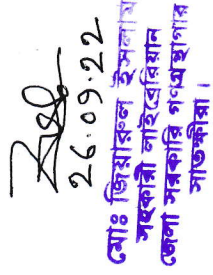 26.09.22
মোঃ জিয়ারুল ইসলাম
সহকারী লাইব্রেরিয়ান
জেলা সরকারি গণগ্রন্থাগার
সাতক্ষীরা।